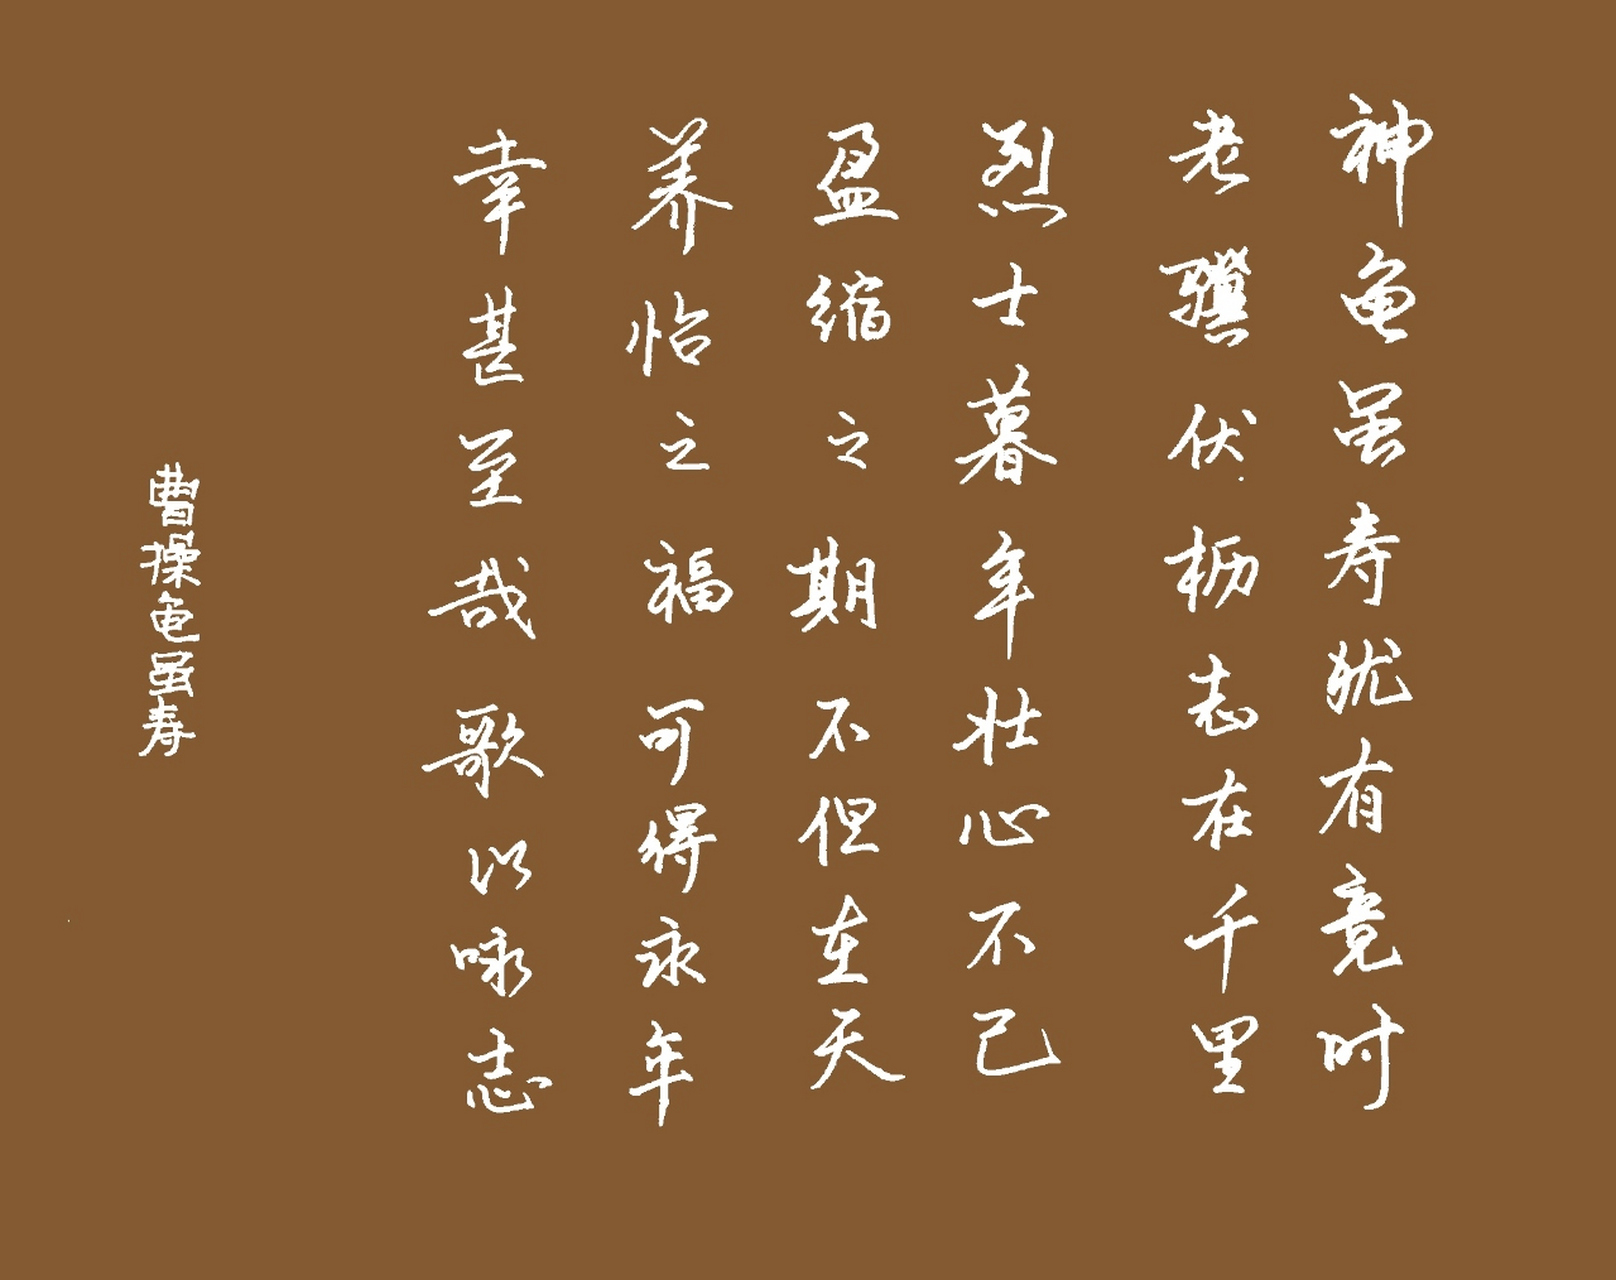 神龟虽寿犹有竟时
老骥伏枥志在千里
烈士暮年壮心不已
盈缩之期不但在天
养怡之福可得永年
幸甚至哉歌以咏志
曹操龟虽寿